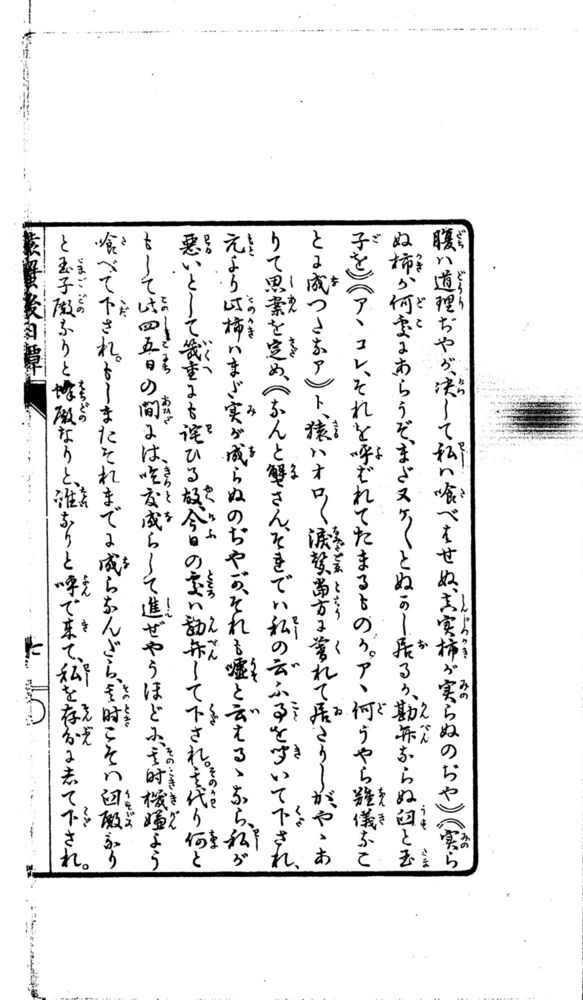 腹ハ道理ぢやが、决して私ハ喰べませぬ、真実柿が実らぬのぢや》《実ら
ぬ柿が何処にあらうぞ、まだヌケ〳〵とぬかし居るか、勘弁ならぬ臼と玉
子を》《アヽコレ、それを呼ばれてたまるものか。アヽ何うやら難儀なこ
とに成つたなア》ト、猿ハオロ〳〵涙声、当方に暮れて居たりしが、やゝあ
りて思案を定め、《なんと蟹さん、それでハ私の云ふ事を聞いて下され、
元より此柿ハまだ実が成らぬのぢやが、それも嘘と云はるゝなら、私が
悪いとして幾重にも詫びる故、今日の処ハ勘弁して下され。其代り何と
もして此四五日の間にハ、吃度成らして進ぜやうほどに、其時機嫌よう
喰べて下され。もしまたそれまでに成らなんだら、其時こそハ臼殿なり
と玉子殿なりと蜂殿なりと、誰なりと呼で来て、私を存分にして下され。
猿蟹後日譚
七